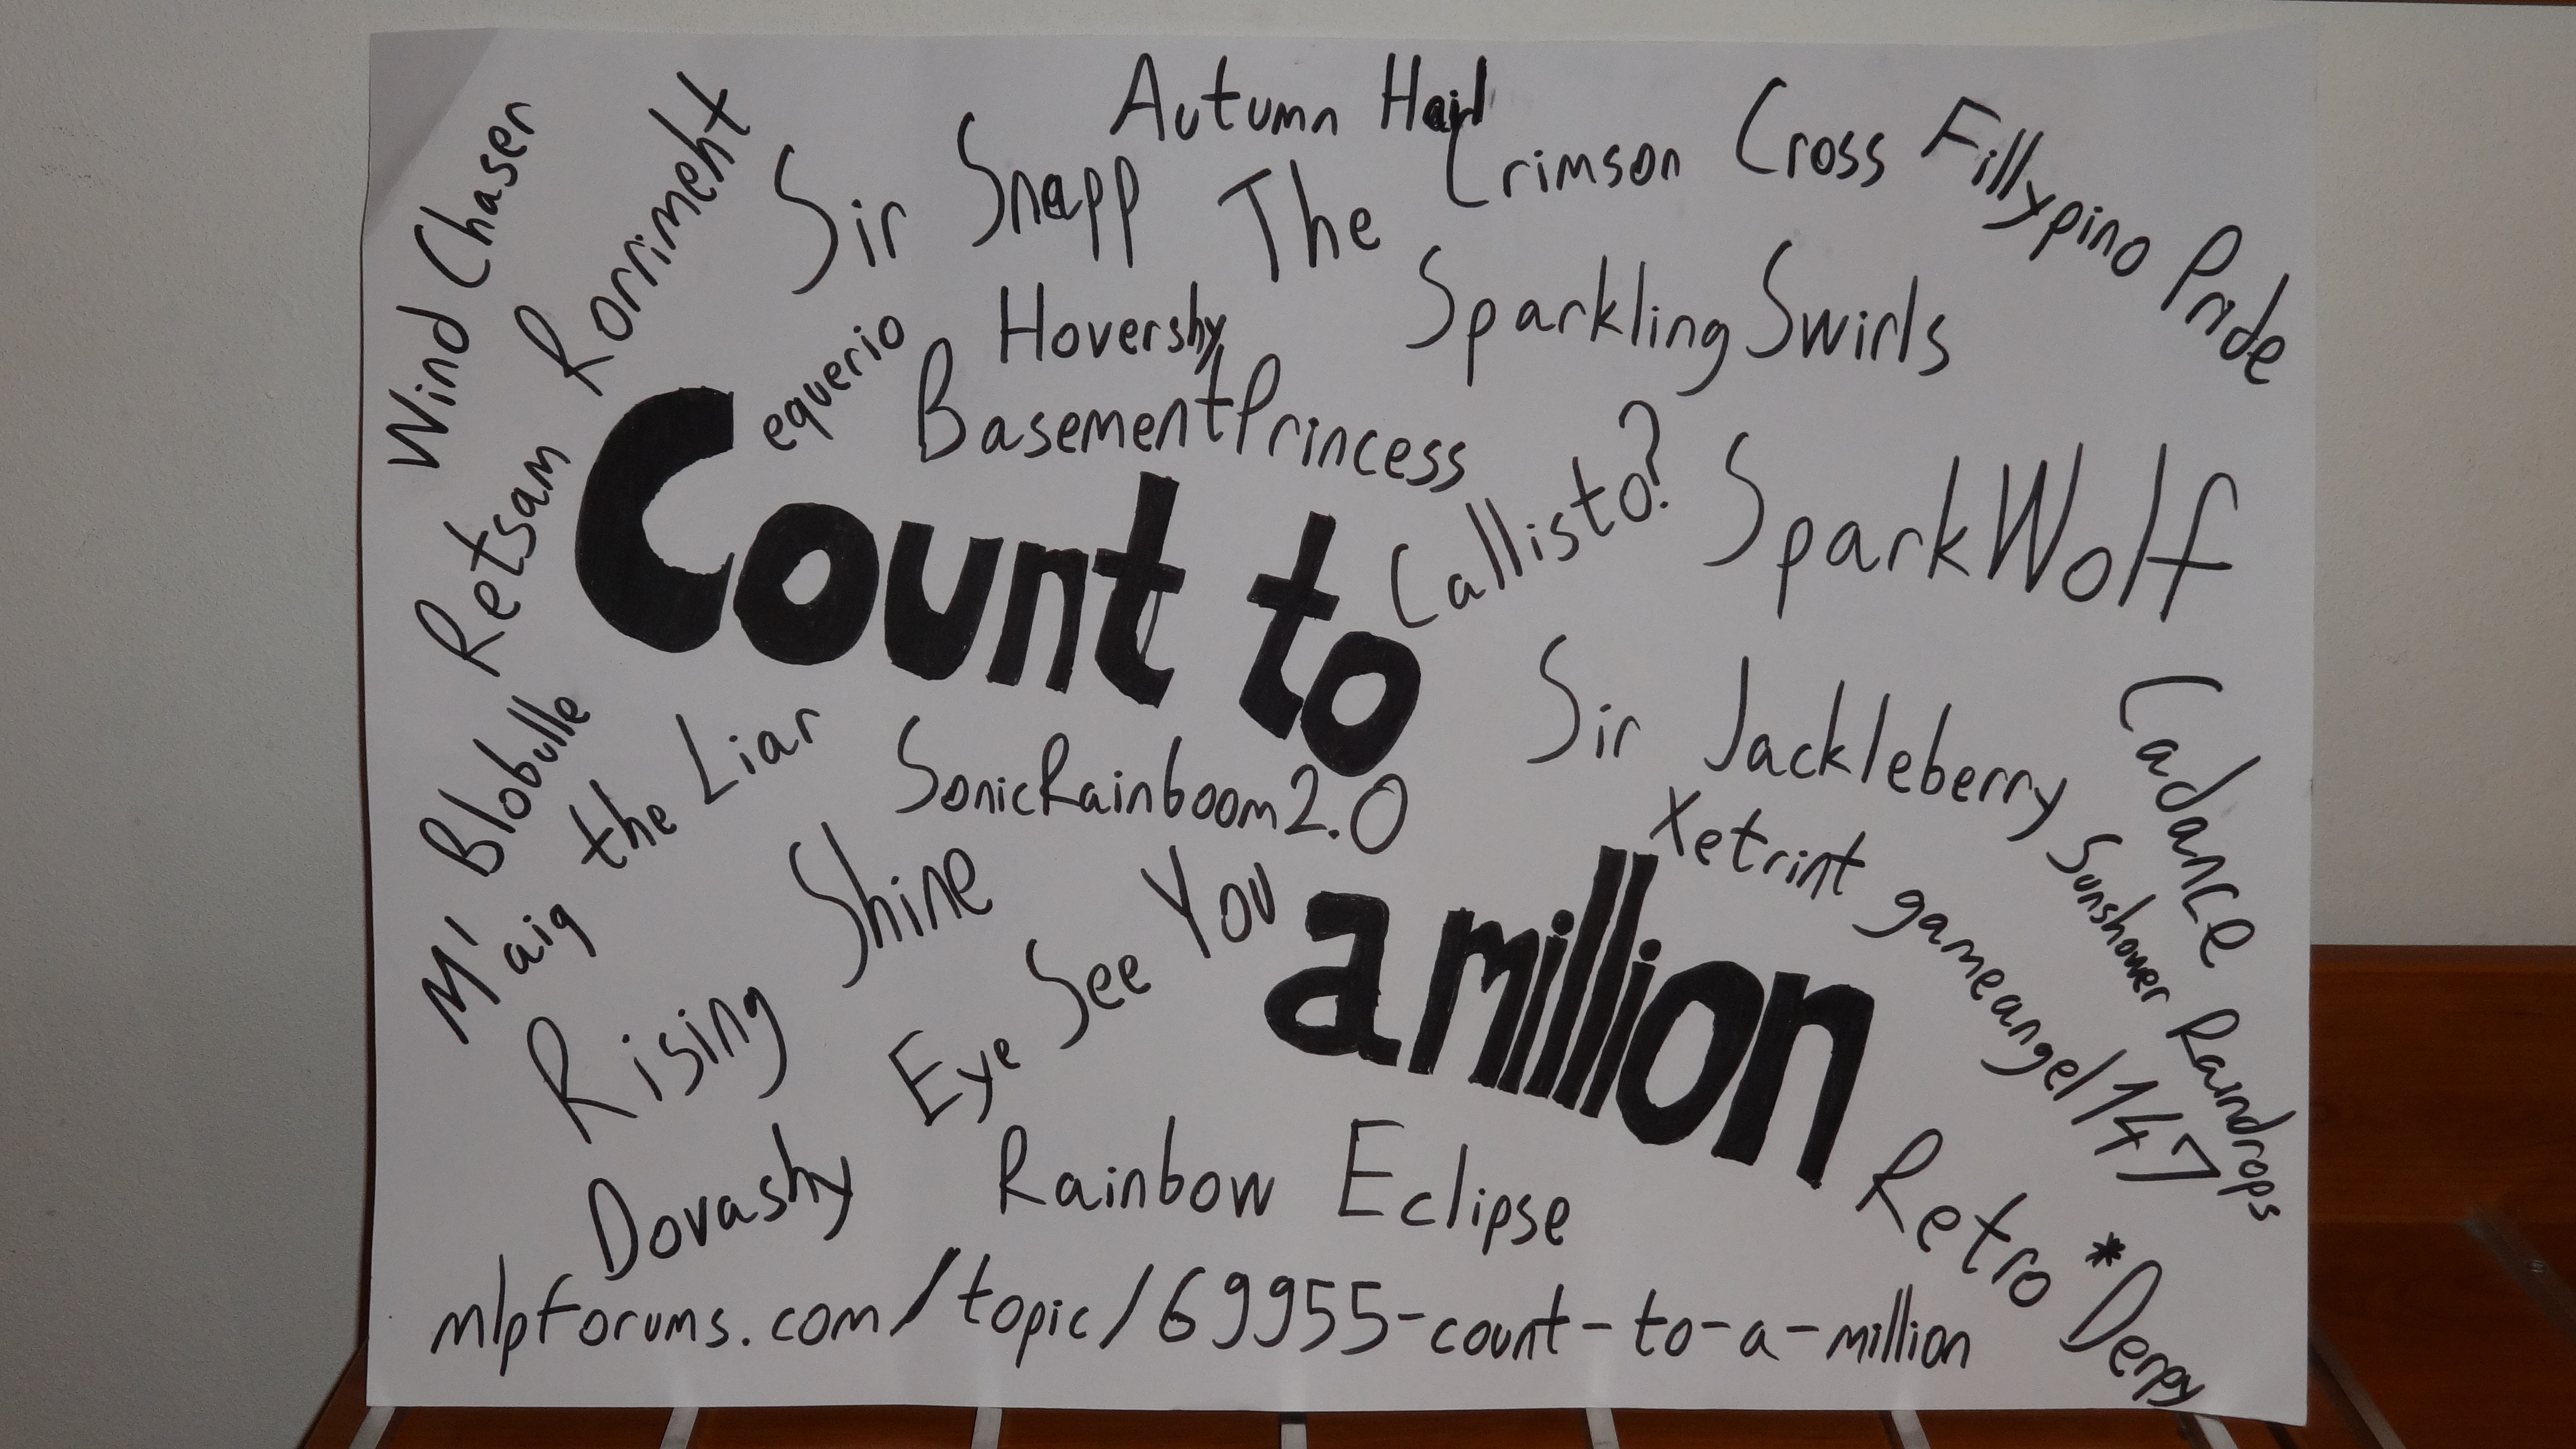 Autumn Hail
Wind Chaser
Retsam Rorrimeht
Sir Snapp The
Crimson Cross
Fillypino Pride
equerio
Hovershy
Sparkling Swirls
BasementPrincess
Callisto?
SparkWolf
Count to
Blobulle
M'aiq the Liar
SonicRainboom2.0
Sir Jackleberry
Cadance
Xetrint
gameangel147
Sunshower Raindrops
Rising Shine
Eye See You
a million
Dovashy
Rainbow Eclipse
Retro *Derpy
mlpforums.com/topic/69955-count-to-a-million